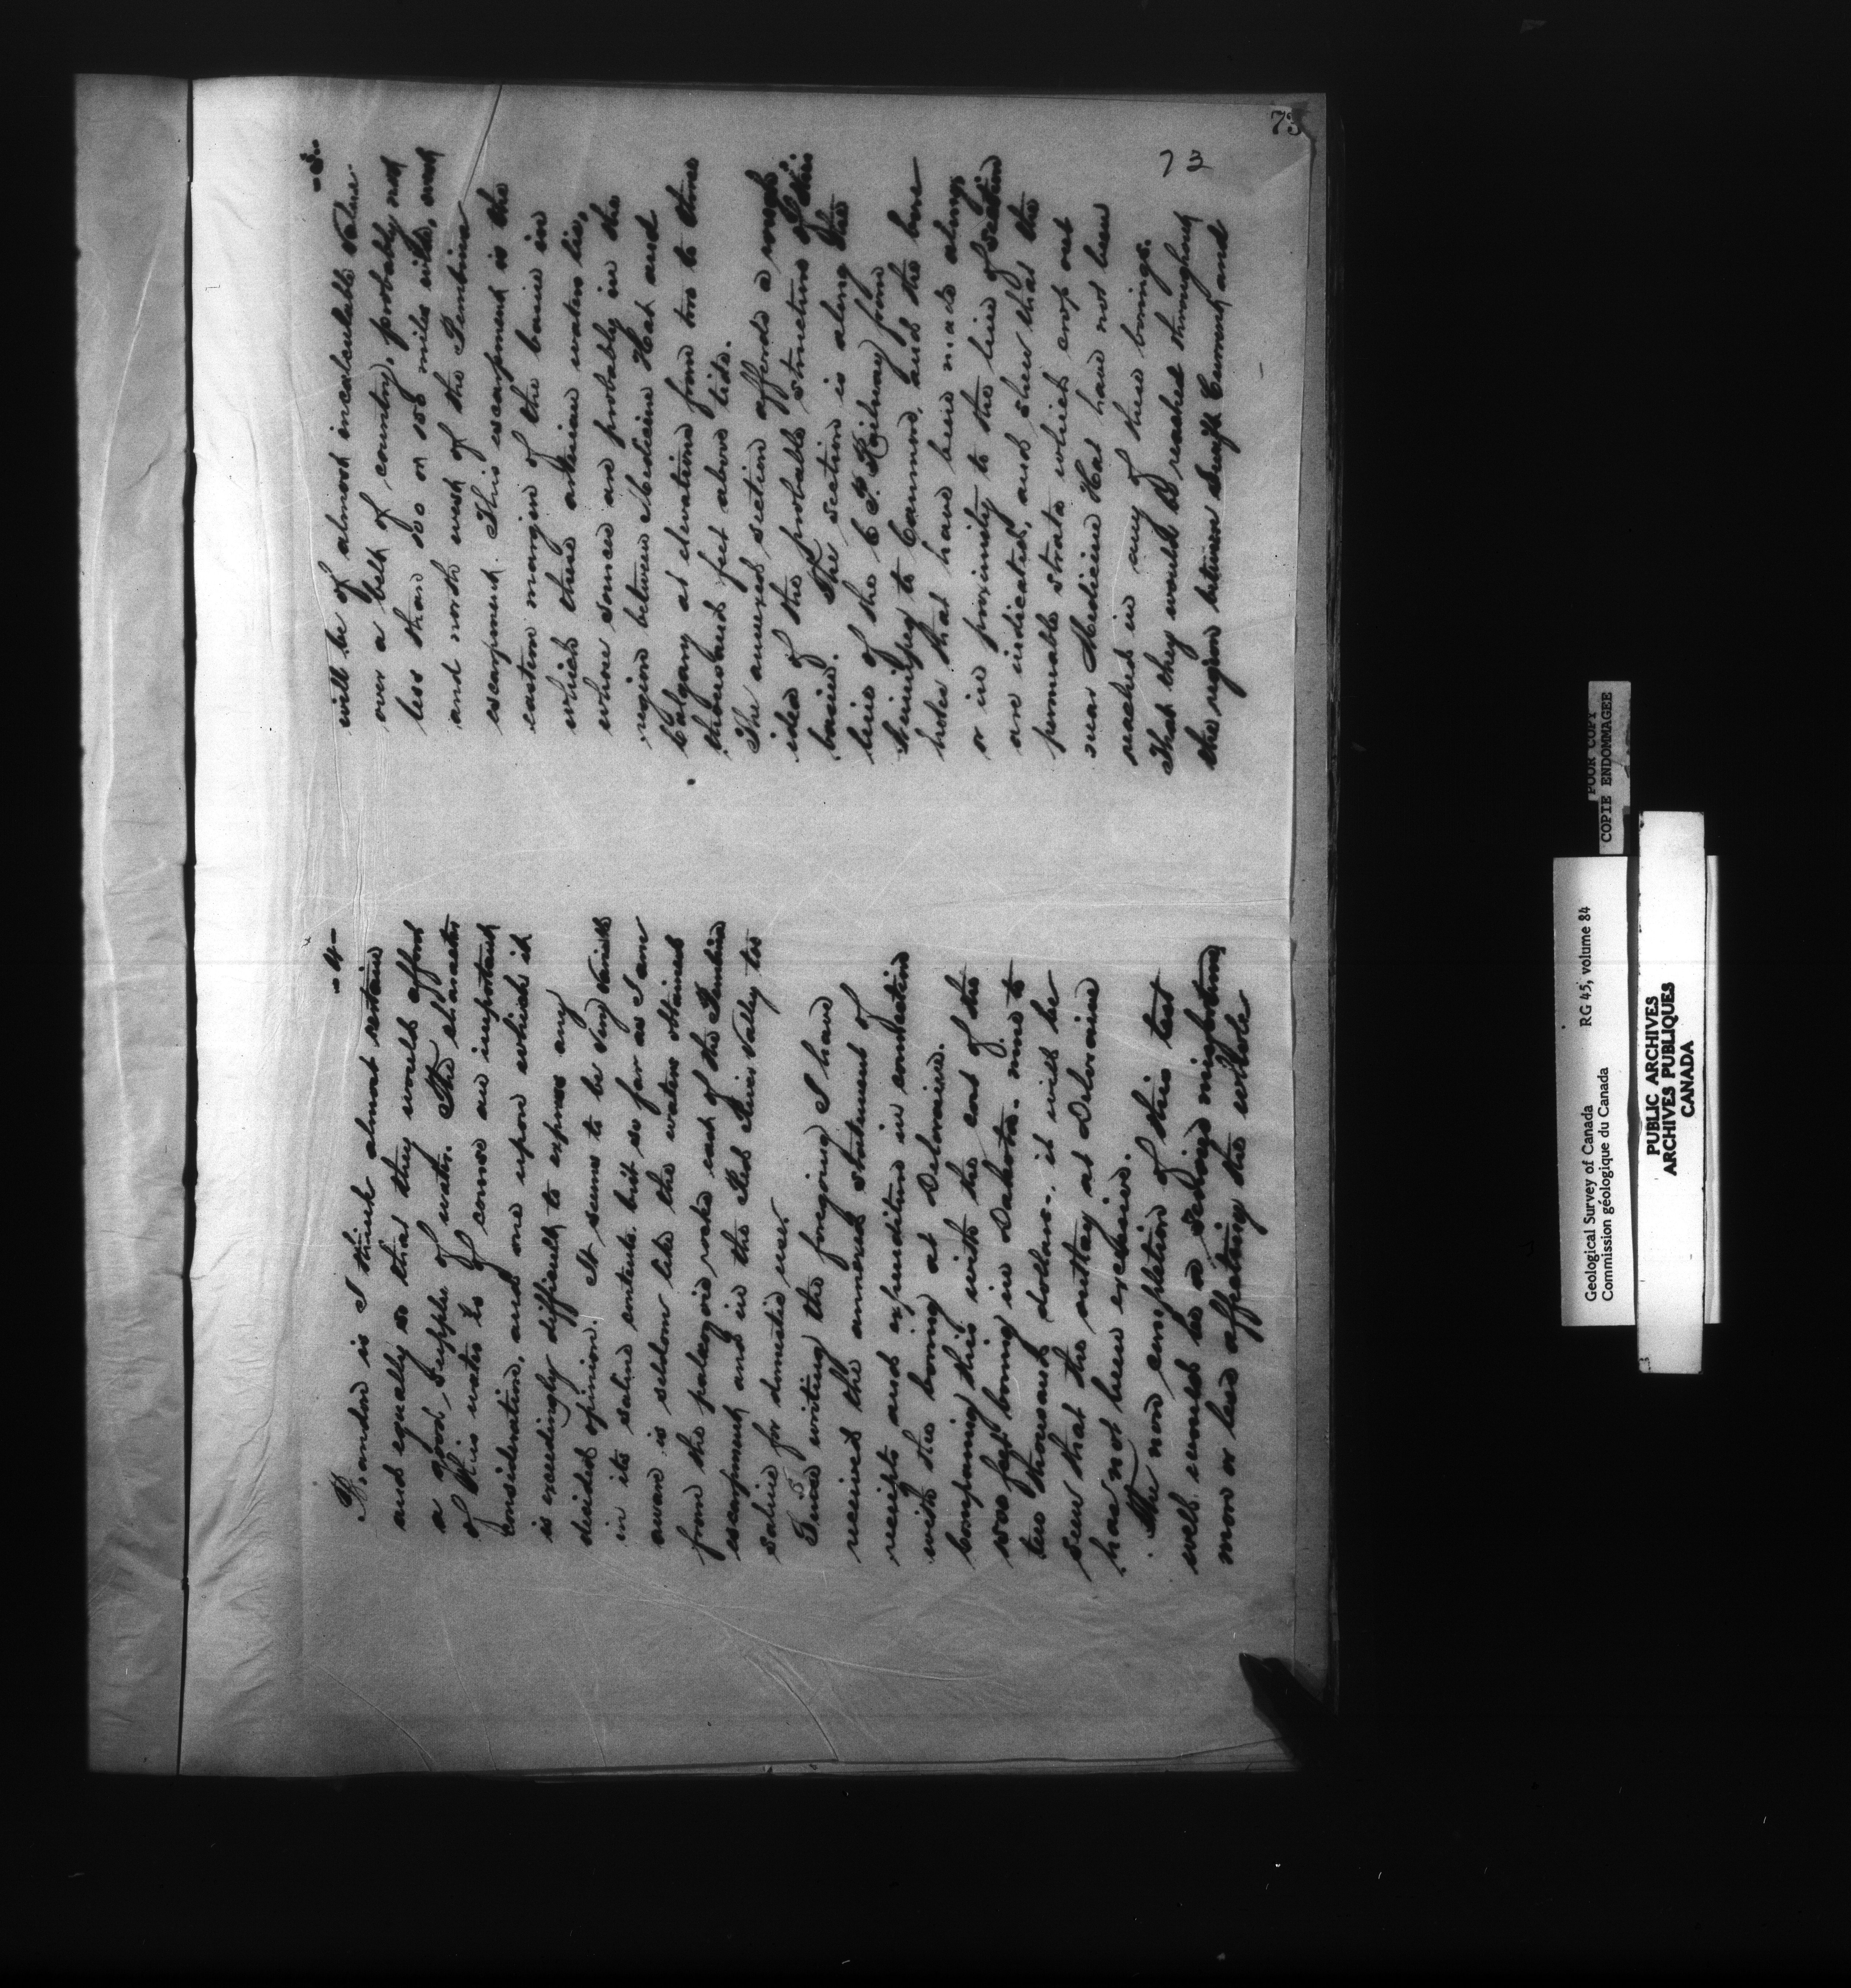 -4-
Brandon is I think almost certain
and equally so that they would afford
a good supply of water. The character
of this water is of course an important
consideration, and one upon which it
is exceedingly difficult to express any
decided opinion. It seems to be very variable
in its saline contents but so far as I am
aware is seldom like the waters obtained
from the palæozoic rocks east of the Pembina
escarpment and in the Red River Valley too
saline for domestic uses
Since writing the foregoing I have
received the annexed statement of
receipts and expenditure in connection
with the boring at Deloraine.
Comparing this with the cost of the
feet boring in Dakota - nine to
ten thousand dollars - it will be
seen that the outlay at Deloraine
has not been excessive.
The non completion of this test
well would be a serious misfortune
more or less affecting the whole
-5-
will be of almost incalculable value
over a belt of country, probably not
less than 500 or 150 miles wide, west
and north west of the Pembina
escarpment. This escarpment is the
eastern margin of the basin in
which these artesian waters lie,
whose sources are probably in the
region between Medicine Hat and
Calgary at elevations from two to three
thousand feet above tide.
The annexed section affords a rough
idea of the probable structure of this
basin. The section is along the
line of the C. P. Railway from
Winnipeg to Canmore, and the bore
holes that have been made along
or in proximity to the line of section
are indicated, and shew that the
permeable strata which crop out
near Medicine Hat have not been
reached in any of these borings.
That they would be reached throughout
the region between Swift Current and
73
73
POOR COPY
COPIE ENDOMMAGEE
Geological Survey of Canada RG 45, volume 84
Commission géologique du Canada
PUBLIC ARCHIVES
ARCHIVES PUBLIQUES
CANADA